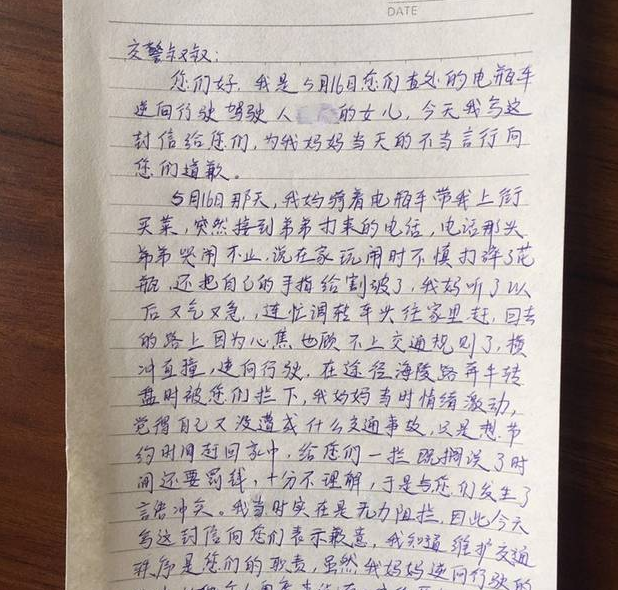 DATE
交警叔叔:
您们好,我是5月16日您们查处的电瓶车
逆向行驶驾驶人 的女儿,今天我写这
封信给您们,为我妈妈当天的不当言行向
您们道歉。
5月16日那天,我妈骑着电瓶车带我上街
买菜,突然接到弟弟打来的电话,电话那头
弟弟哭闹不止,说在家玩闹时不慎打碎了花
瓶,还把自己的手指给割破了,我妈听了以
后又气又急,连忙调转车头往家里赶,回去
的路上因为心焦也顾不上交通规则了,横
冲直撞,逆向行驶,在途径海陵路 转
盘时被您们拦下,我妈妈当时情绪激动,
觉得自己又没遭成什么交通事故,只是想节
约时间赶回家中,给您们一拦既搁误了时
间还要罚钱,十分不理解,于是与您们发生了
言语冲突。我当时实在是无力阻拦,因此今天
写这封信向您们表示歉意,我知道维护交通
秩序是您们的职责,虽然我妈妈逆向行驶的